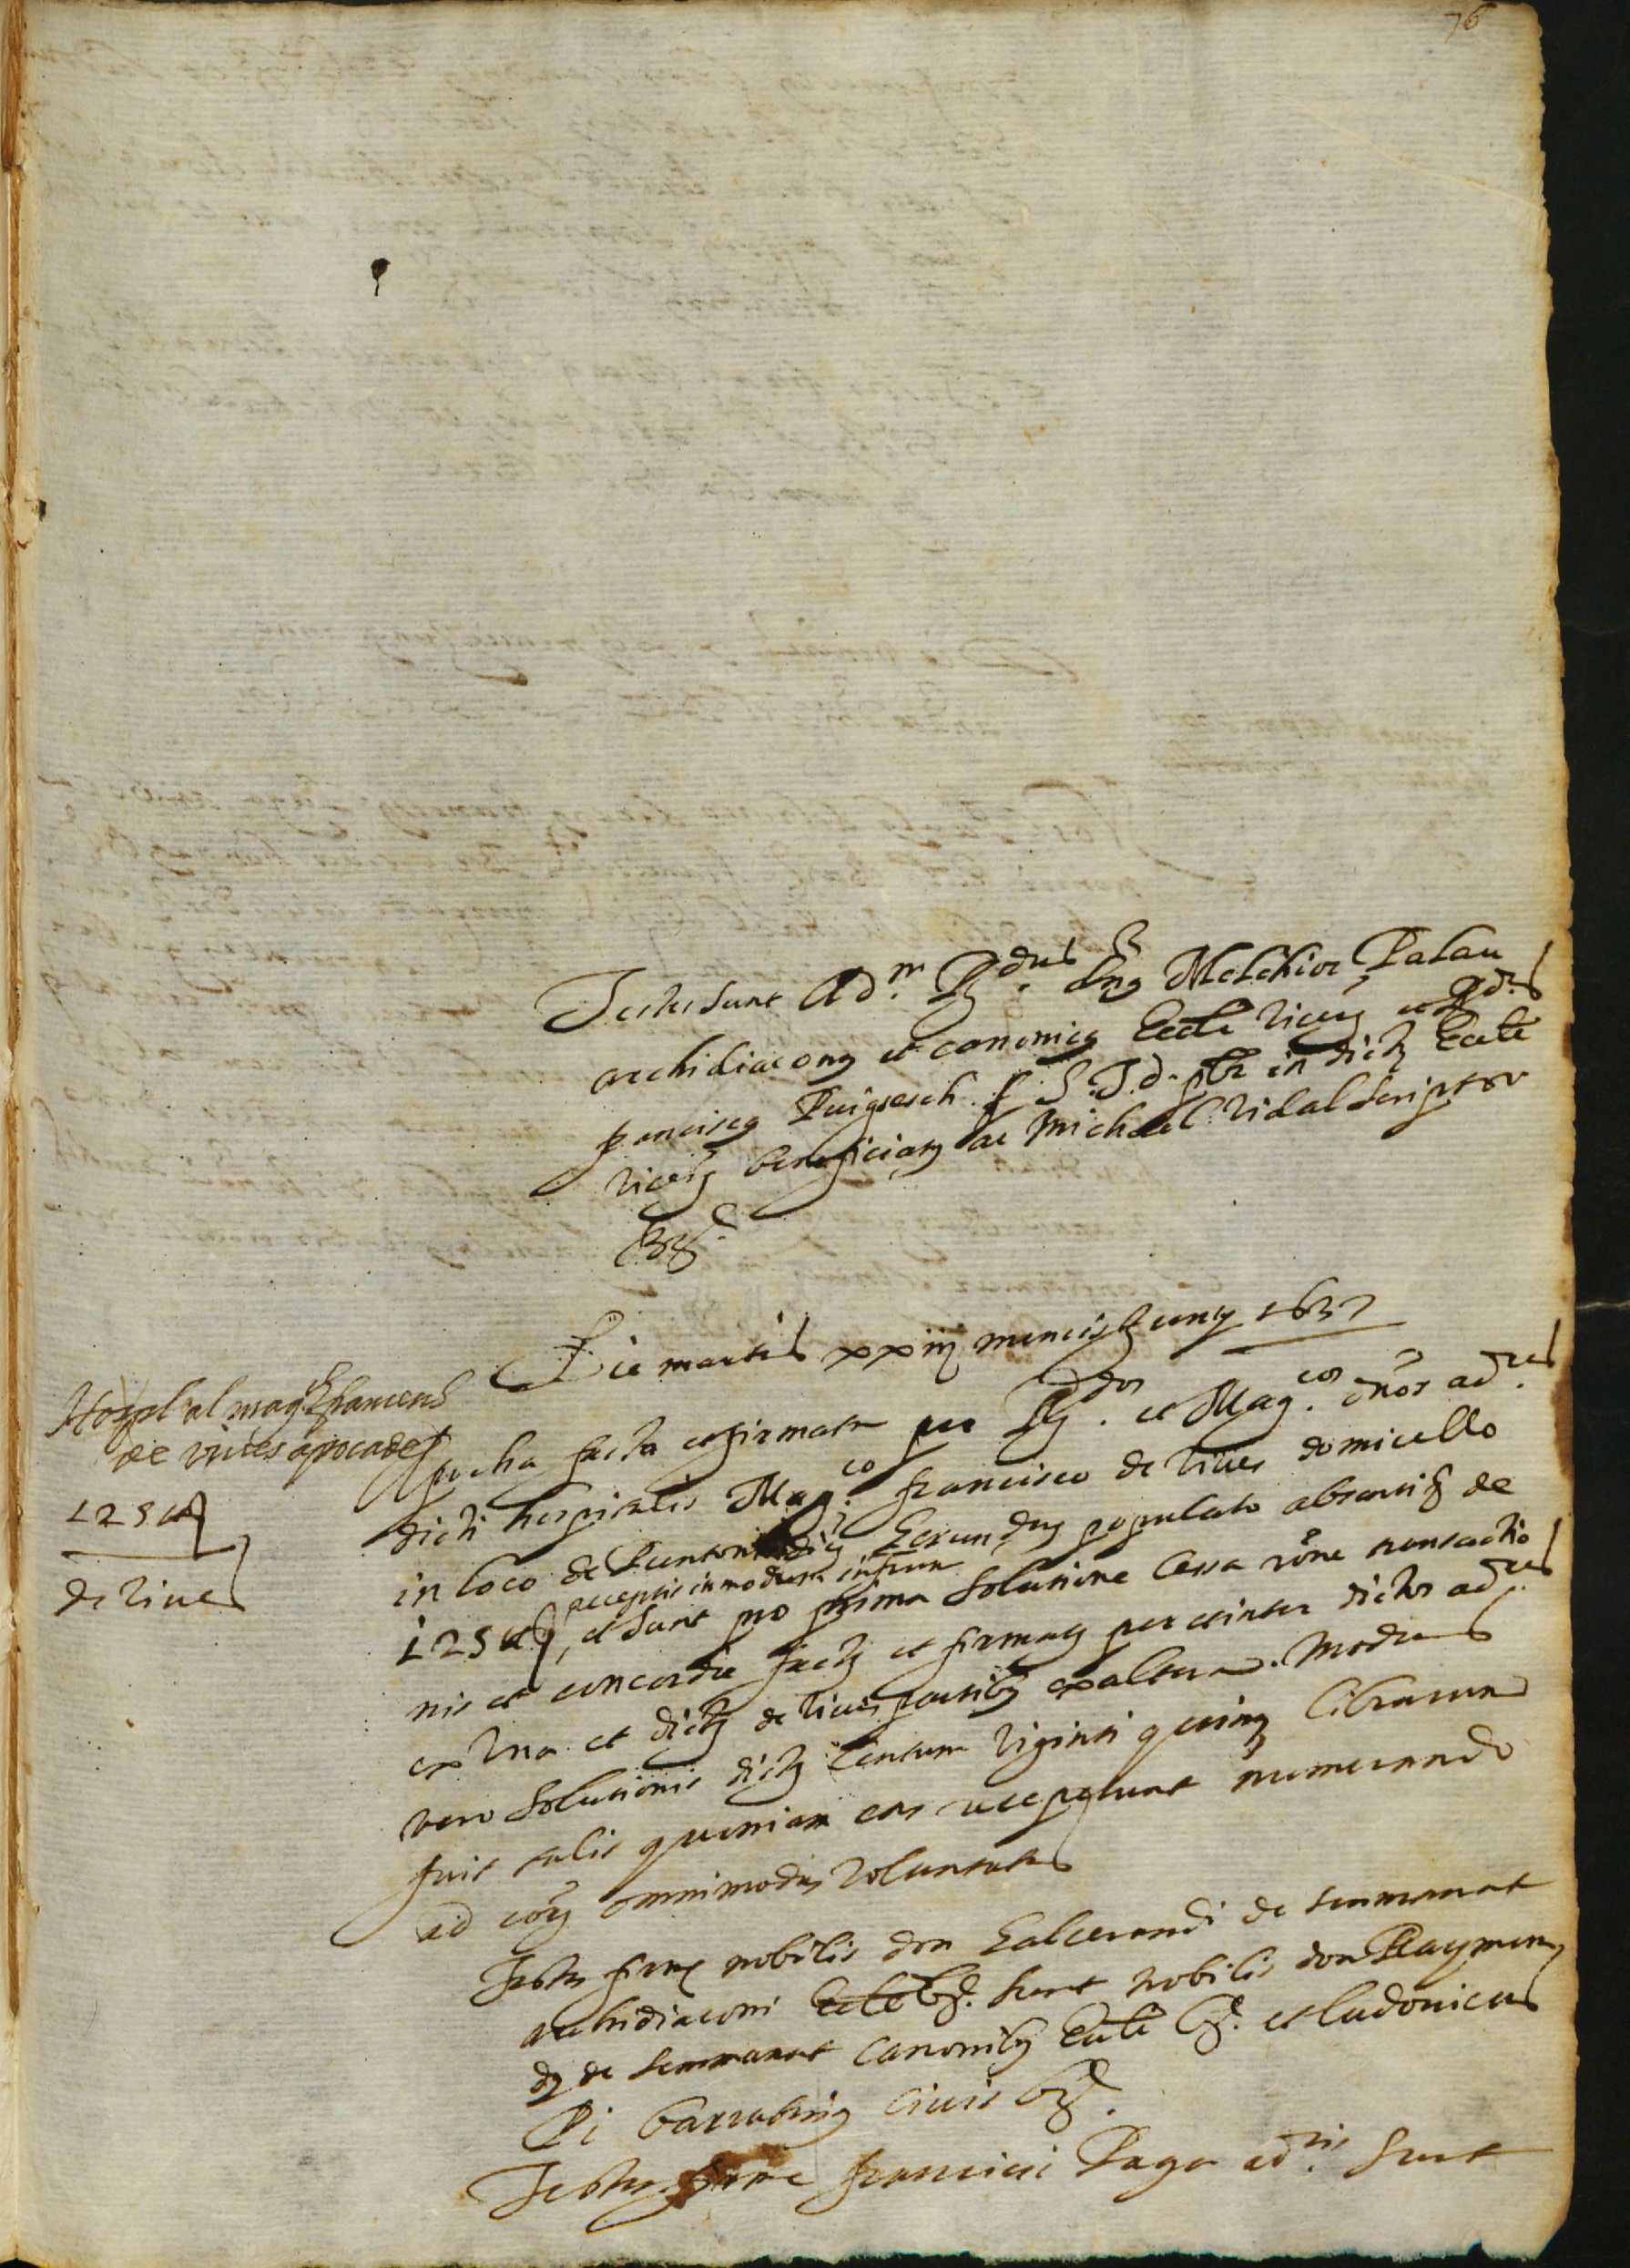 76
Testes sunt Adm. Rdus. Dns Melchior Palau
archidiaconus et canonicus Eccle Vicen et Rdus.
franciscus Puigsech S.T.D. pbr in dicta Eccle
vicen beneficiatus ac Michael Vidal scriptor
Bar.
Die martis xxiij mensis Juny 1637
Hospl al magch franeesch
de vives apoca de
125 ll
de vives
Apocha facta et firmata per Rdos. et Magcos. dnos adres.
dicti hospitalis Magco. francisco de vives domicello
in loco de populato absenti de
125 ll, acceptis in modum infrum et sunt pro prima solutione Cessa rone transactio
nis et concordie facte et firmate per et inter dictos adres.
ex vna et dictum de vives partibus ex altera. Modus
vero solutionis dictarum Centum viginti quinque librarum
fuit talis quoniam eas receperunt numerando
ad eorum omnimodam voluntatem
Testes firme nobilis don Galcerandi de senmanat
archidiaconi Eccle Bar. sunt nobilis don Raymun
dus de senmanat Canonicus Eccle Bar. et ludovicus
Pi civis Bar.
Testes firme francisci Paga adris. sunt